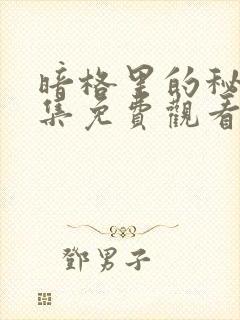 暗格里的秘
集免費觀看
鄧男子